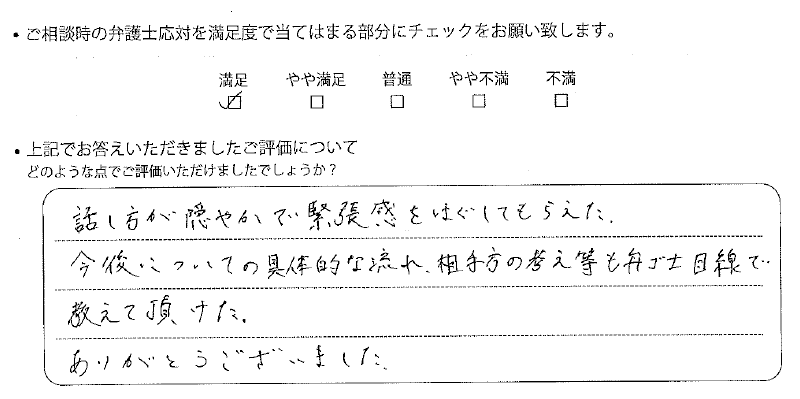 ・ご相談時の弁護士応対を満足度で当てはまる部分にチェックをお願い致します。
満足 やや満足 普通 やや不満 不満
・上記でお答えいただきましたご評価について
どのような点でご評価いただけましたでしょうか？
話し方が隠やかで緊張感をほぐしてもらえた。
今後についての具体的な流れ、相手方の考え等も弁ゴ士目線で
教えて頂けた。
ありがとうございました。